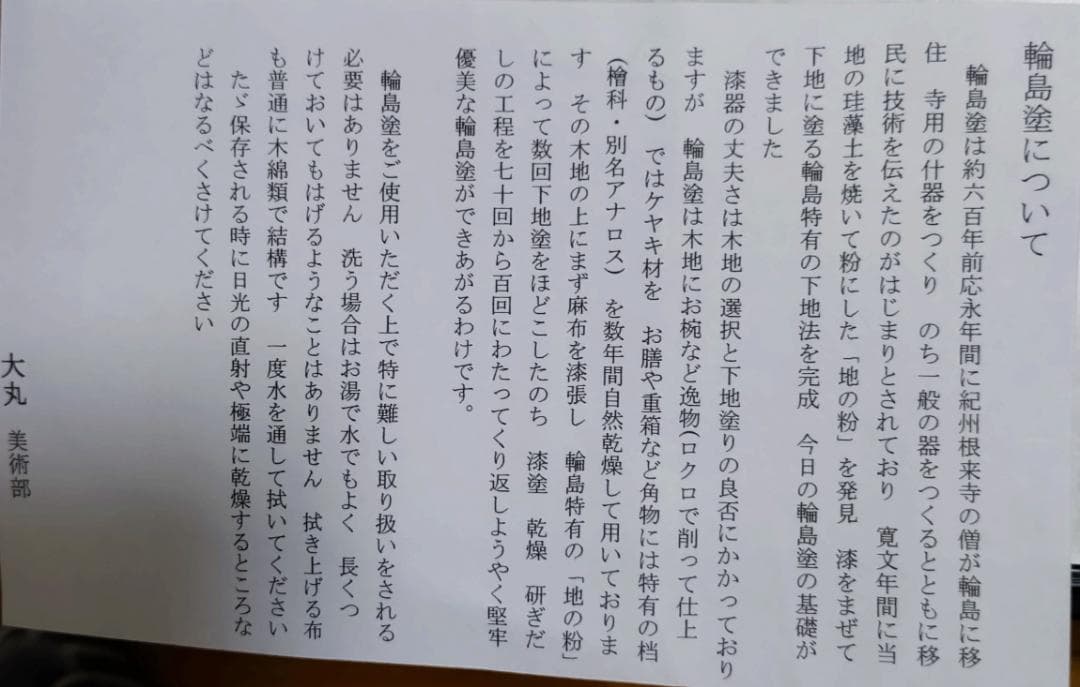 輪島塗について
輪島塗は約六百年前応永年間に紀州根来寺の僧が輪島に移
住　寺用の什器をつくり　のち一般の器をつくるとともに移
民に技術を伝えたのがはじまりとされており　寛文年間に当
地の珪藻土を焼いて粉にした「地の粉」を発見　漆をまぜて
下地に塗る輪島特有の下地法を完成　今日の輪島塗の基礎が
できました
漆器の丈夫さは木地の選択と下地塗りの良否にかかっており
ますが　輪島塗は木地にお椀など逸物(ロクロで削って仕上
るもの)　ではケヤキ材を　お膳や重箱など角物には特有の档
(檜科・別名アナロス)　を数年間自然乾燥して用いておりま
す　その木地の上にまず麻布を漆張し　輪島特有の「地の粉」
によって数回下地塗をほどこしたのち　漆塗　乾燥　研ぎだ
しの工程を七十回から百回にわたってくり返しようやく堅牢
優美な輪島塗ができあがるわけです。
輪島塗をご使用いただく上で特に難しい取り扱いをされる
必要はありません　洗う場合はお湯で水でもよく　長くつ
けておいてもはげるようなことはありません　拭き上げる布
も普通に木綿類で結構です　一度水を通して拭いてください
たゞ保存される時に日光の直射や極端に乾燥するところな
どはなるべくさけてください
大丸　美術部